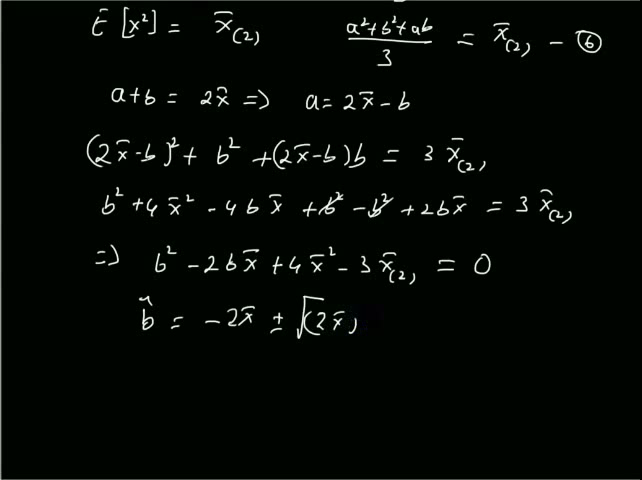 E [x²] = x̄₍₂₎   (a²+b²+ab)/3 = x̄₍₂₎ - ⑥
a+b = 2x̄ => a = 2x̄ - b
(2x̄-b)² + b² + (2x̄-b)b = 3 x̄₍₂₎
b² + 4x̄² - 4bx̄ + b² - b² + 2bx̄ = 3 x̄₍₂₎
=> b² - 2bx̄ + 4x̄² - 3x̄₍₂₎ = 0
b̂ = -2x̄ ± √(2x̄)